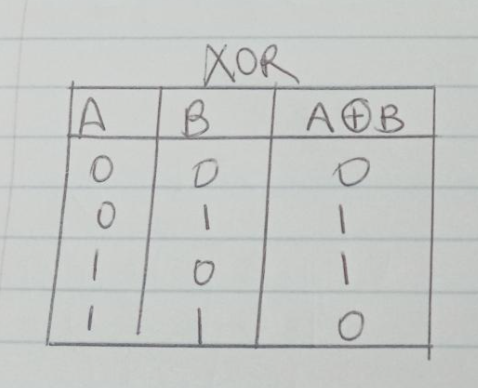 XOR
A B A⊕B
0 0 0
0 1 1
1 0 1
1 1 0